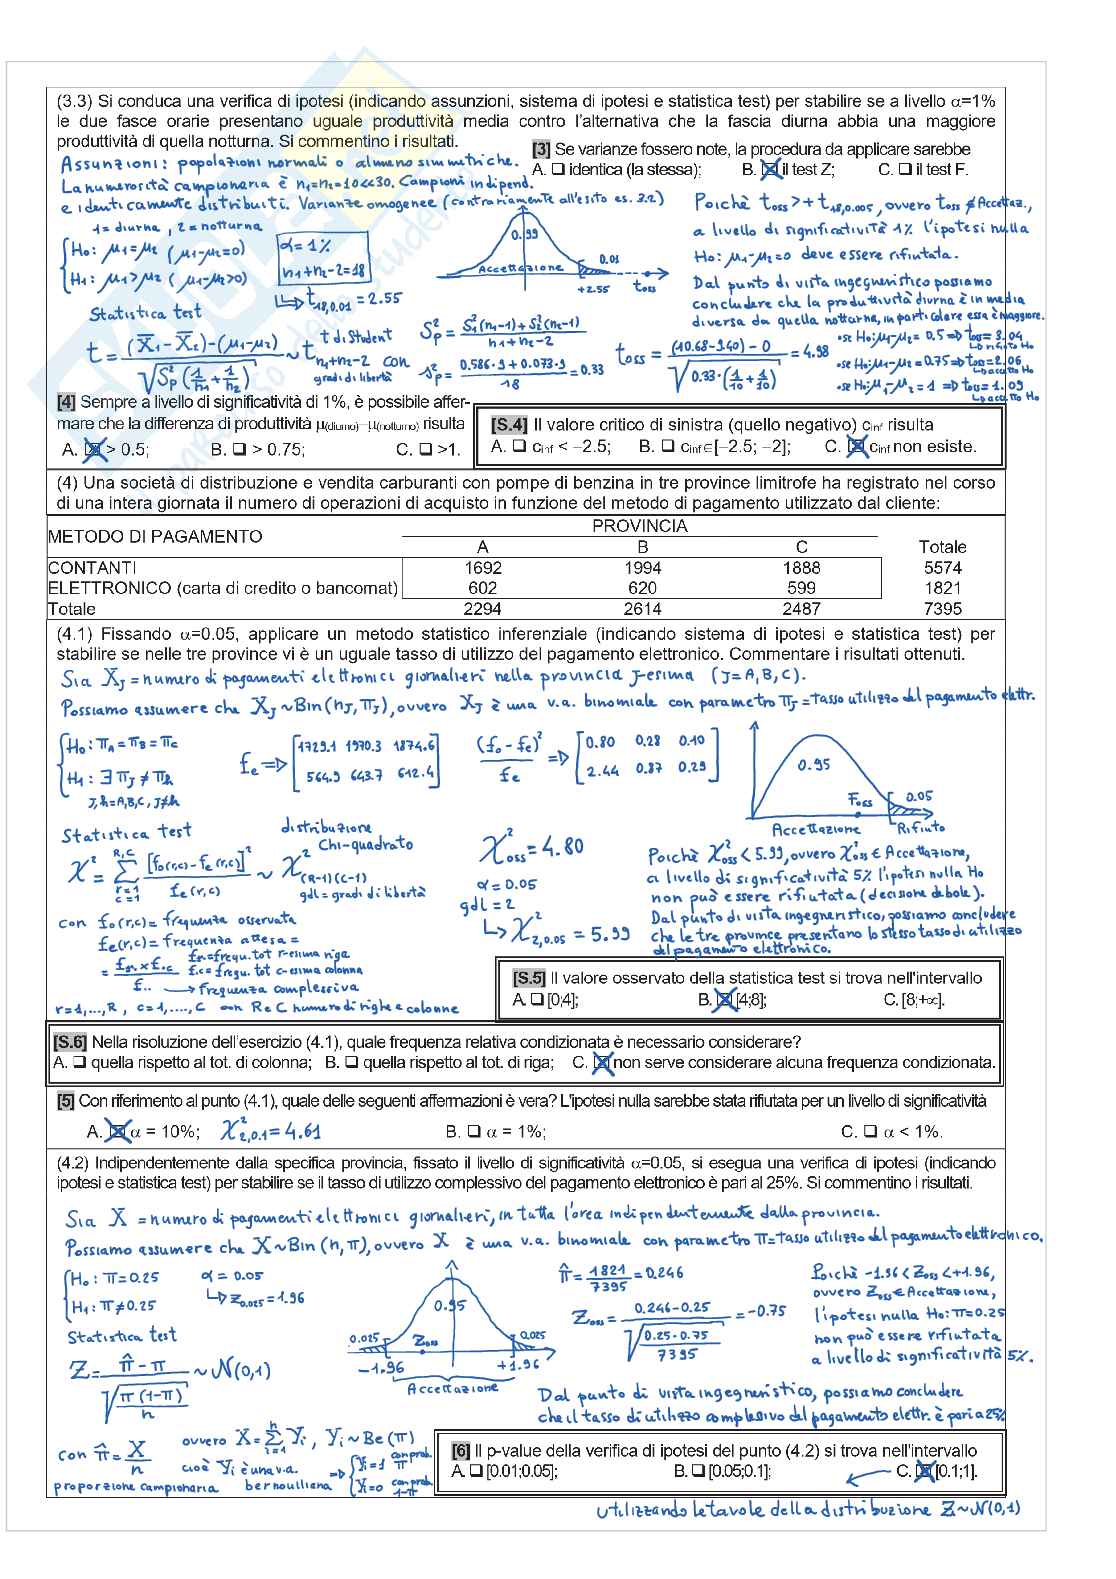 (3.3) Si conduca una verifica di ipotesi (indicando assunzioni, sistema di ipotesi e statistica test) per stabilire se a livello α=1%
le due fasce orarie presentano uguale produttività media contro l'alternativa che la fascia diurna abbia una maggiore
produttività di quella notturna. Si commentino i risultati.
[3] Se varianze fossero note, la procedura da applicare sarebbe
A. ❑ identica (la stessa); B. ☒ il test Z; C. ❑ il test F.
Assunzioni: popolazioni normali o almeno simmetriche.
La numerosità campionaria è n1=n2=10<<30. Campioni indipend.
e identicamente distribuiti. Varianze omogenee (contrariamente all'esito es. 3.2)
1 = diurna, 2 = notturna
H0: μ1=μ2 (μ1-μ2=0)
H1: μ1>μ2 (μ1-μ2>0)
α=1%
n1+n2-2=18
↳ t18,0.01 = 2.55
0.99
Accettazione
0.01
+2.55 toss
Poichè toss>+t18,0.005, ovvero toss ∉ Accettaz.,
a livello di significatività 1% l'ipotesi nulla
H0: μ1-μ2=0 deve essere rifiutata.
Dal punto di vista ingegneristico possiamo
concludere che la produttività diurna è in media
diversa da quella notturna, in particolare essa è maggiore.
Statistica test
t = (X̄1-X̄2)-(μ1-μ2) / √(Sp²(1/n1+1/n2)) ~ t n1+n2-2
t di Student
con
gradi di libertà
Sp² = S1²(n1-1)+S2²(n2-1) / n1+n2-2
sp² = 0.586·9+0.073·9 / 18 = 0.33
toss = (10.68-9.40)-0 / √(0.33·(1/10+1/10)) = 4.98
•se H0: μ1-μ2= 0.5 ⇒ toss= 3.04
↳ rifiuto H0
•se H0: μ1-μ2=0.75 ⇒ toss=2.06
↳ accetto H0
•se H0: μ1-μ2 = 1 ⇒ toss= 1.09
↳ accetto H0
[4] Sempre a livello di significatività di 1%, è possibile affer-
mare che la differenza di produttività μ(diurno)–μ(notturno) risulta
A. ☒ > 0.5; B. ❑ > 0.75; C. ❑ >1.
[S.4] Il valore critico di sinistra (quello negativo) cinf risulta
A. ❑ cinf < –2.5; B. ❑ cinf∈[–2.5; –2]; C. ☒ cinf non esiste.
(4) Una società di distribuzione e vendita carburanti con pompe di benzina in tre province limitrofe ha registrato nel corso
di una intera giornata il numero di operazioni di acquisto in funzione del metodo di pagamento utilizzato dal cliente:
METODO DI PAGAMENTO PROVINCIA
A B C Totale
CONTANTI 1692 1994 1888 5574
ELETTRONICO (carta di credito o bancomat) 602 620 599 1821
Totale 2294 2614 2487 7395
(4.1) Fissando α=0.05, applicare un metodo statistico inferenziale (indicando sistema di ipotesi e statistica test) per
stabilire se nelle tre province vi è un uguale tasso di utilizzo del pagamento elettronico. Commentare i risultati ottenuti.
Sia XJ = numero di pagamenti elettronici giornalieri nella provincia J-esima (J=A,B,C).
Possiamo assumere che XJ ~ Bin(nJ, πJ), ovvero XJ è una v.a. binomiale con parametro πJ = tasso utilizzo del pagamento elettr.
H0: πA = πB = πC
H1: ∃ πJ ≠ πh
J,h=A,B,C, J≠h
fe ⇒ [1729.1 1970.3 1874.6
564.9 643.7 612.4]
(fo-fe)² / fe ⇒ [0.80 0.28 0.10
2.44 0.87 0.29]
0.95
Foss
0.05
Accettazione Rifiuto
Statistica test
distribuzione
Chi-quadrato
χ² = Σ r=1 c=1 R,C [fo(r,c)-fe(r,c)]² / fe(r,c) ~ χ² (R-1)(C-1)
gdl = gradi di libertà
con fo(r,c)= frequenza osservata
fe(r,c)= frequenza attesa =
= fr.×f.c / f..
fr.=frequ. tot r-esima riga
f.c=frequ. tot c-esima colonna
→ frequenza complessiva
r=1,...,R, c=1,...,C con R e C numero di righe e colonne
χ²oss = 4.80
α = 0.05
gdl = 2
↳ χ²2,0.05 = 5.99
Poichè χ²oss < 5.99, ovvero χ²oss ∈ Accettazione,
a livello di significatività 5% l'ipotesi nulla H0
non può essere rifiutata (decisione debole).
Dal punto di vista ingegneristico, possiamo concludere
che le tre province presentano lo stesso tasso di utilizzo
del pagamento elettronico.
[S.5] Il valore osservato della statistica test si trova nell'intervallo
A. ❑ [0;4]; B. ☒ [4;8]; C. [8;+∞].
[S.6] Nella risoluzione dell'esercizio (4.1), quale frequenza relativa condizionata è necessario considerare?
A. ❑ quella rispetto al tot. di colonna; B. ❑ quella rispetto al tot. di riga; C. ☒ non serve considerare alcuna frequenza condizionata.
[5] Con riferimento al punto (4.1), quale delle seguenti affermazioni è vera? L'ipotesi nulla sarebbe stata rifiutata per un livello di significatività
A. ☒ α = 10%; χ²2,0.1 = 4.61 B. ❑ α = 1%; C. ❑ α < 1%.
(4.2) Indipendentemente dalla specifica provincia, fissato il livello di significatività α=0.05, si esegua una verifica di ipotesi (indicando
ipotesi e statistica test) per stabilire se il tasso di utilizzo complessivo del pagamento elettronico è pari al 25%. Si commentino i risultati.
Sia X = numero di pagamenti elettronici giornalieri, in tutta l'area indipendentemente dalla provincia.
Possiamo assumere che X ~ Bin(n,π), ovvero X è una v.a. binomiale con parametro π=tasso utilizzo del pagamento elettronico.
H0: π=0.25
H1: π≠0.25
α = 0.05
↳ z0.025 = 1.96
0.95
0.025 zoss 0.025
-1.96 +1.96
Accettazione
π̂ = 1821 / 7395 = 0.246
Zoss = 0.246-0.25 / √(0.25·0.75 / 7395) = -0.75
Poichè -1.96 < Zoss < +1.96,
ovvero Zoss ∈ Accettazione,
l'ipotesi nulla H0: π=0.25
non può essere rifiutata
a livello di significatività 5%.
Statistica test
Z = π̂-π / √(π(1-π) / n) ~ N(0,1)
Dal punto di vista ingegneristico, possiamo concludere
che il tasso di utilizzo complessivo del pagamento elettr. è pari a 25%
con π̂ = X / n
proporzione campionaria
ovvero X = Σ i=1 n Yi, Yi ~ Be(π)
cioè Yi è una v.a.
bernoulliana
⇒ { Yi=1 con prob. π
Yi=0 con prob. 1-π
[6] Il p-value della verifica di ipotesi del punto (4.2) si trova nell'intervallo
A. ❑ [0.01;0.05]; B. ❑ [0.05;0.1]; C. ☒ [0.1;1].
utilizzando le tavole della distribuzione Z~N(0,1)